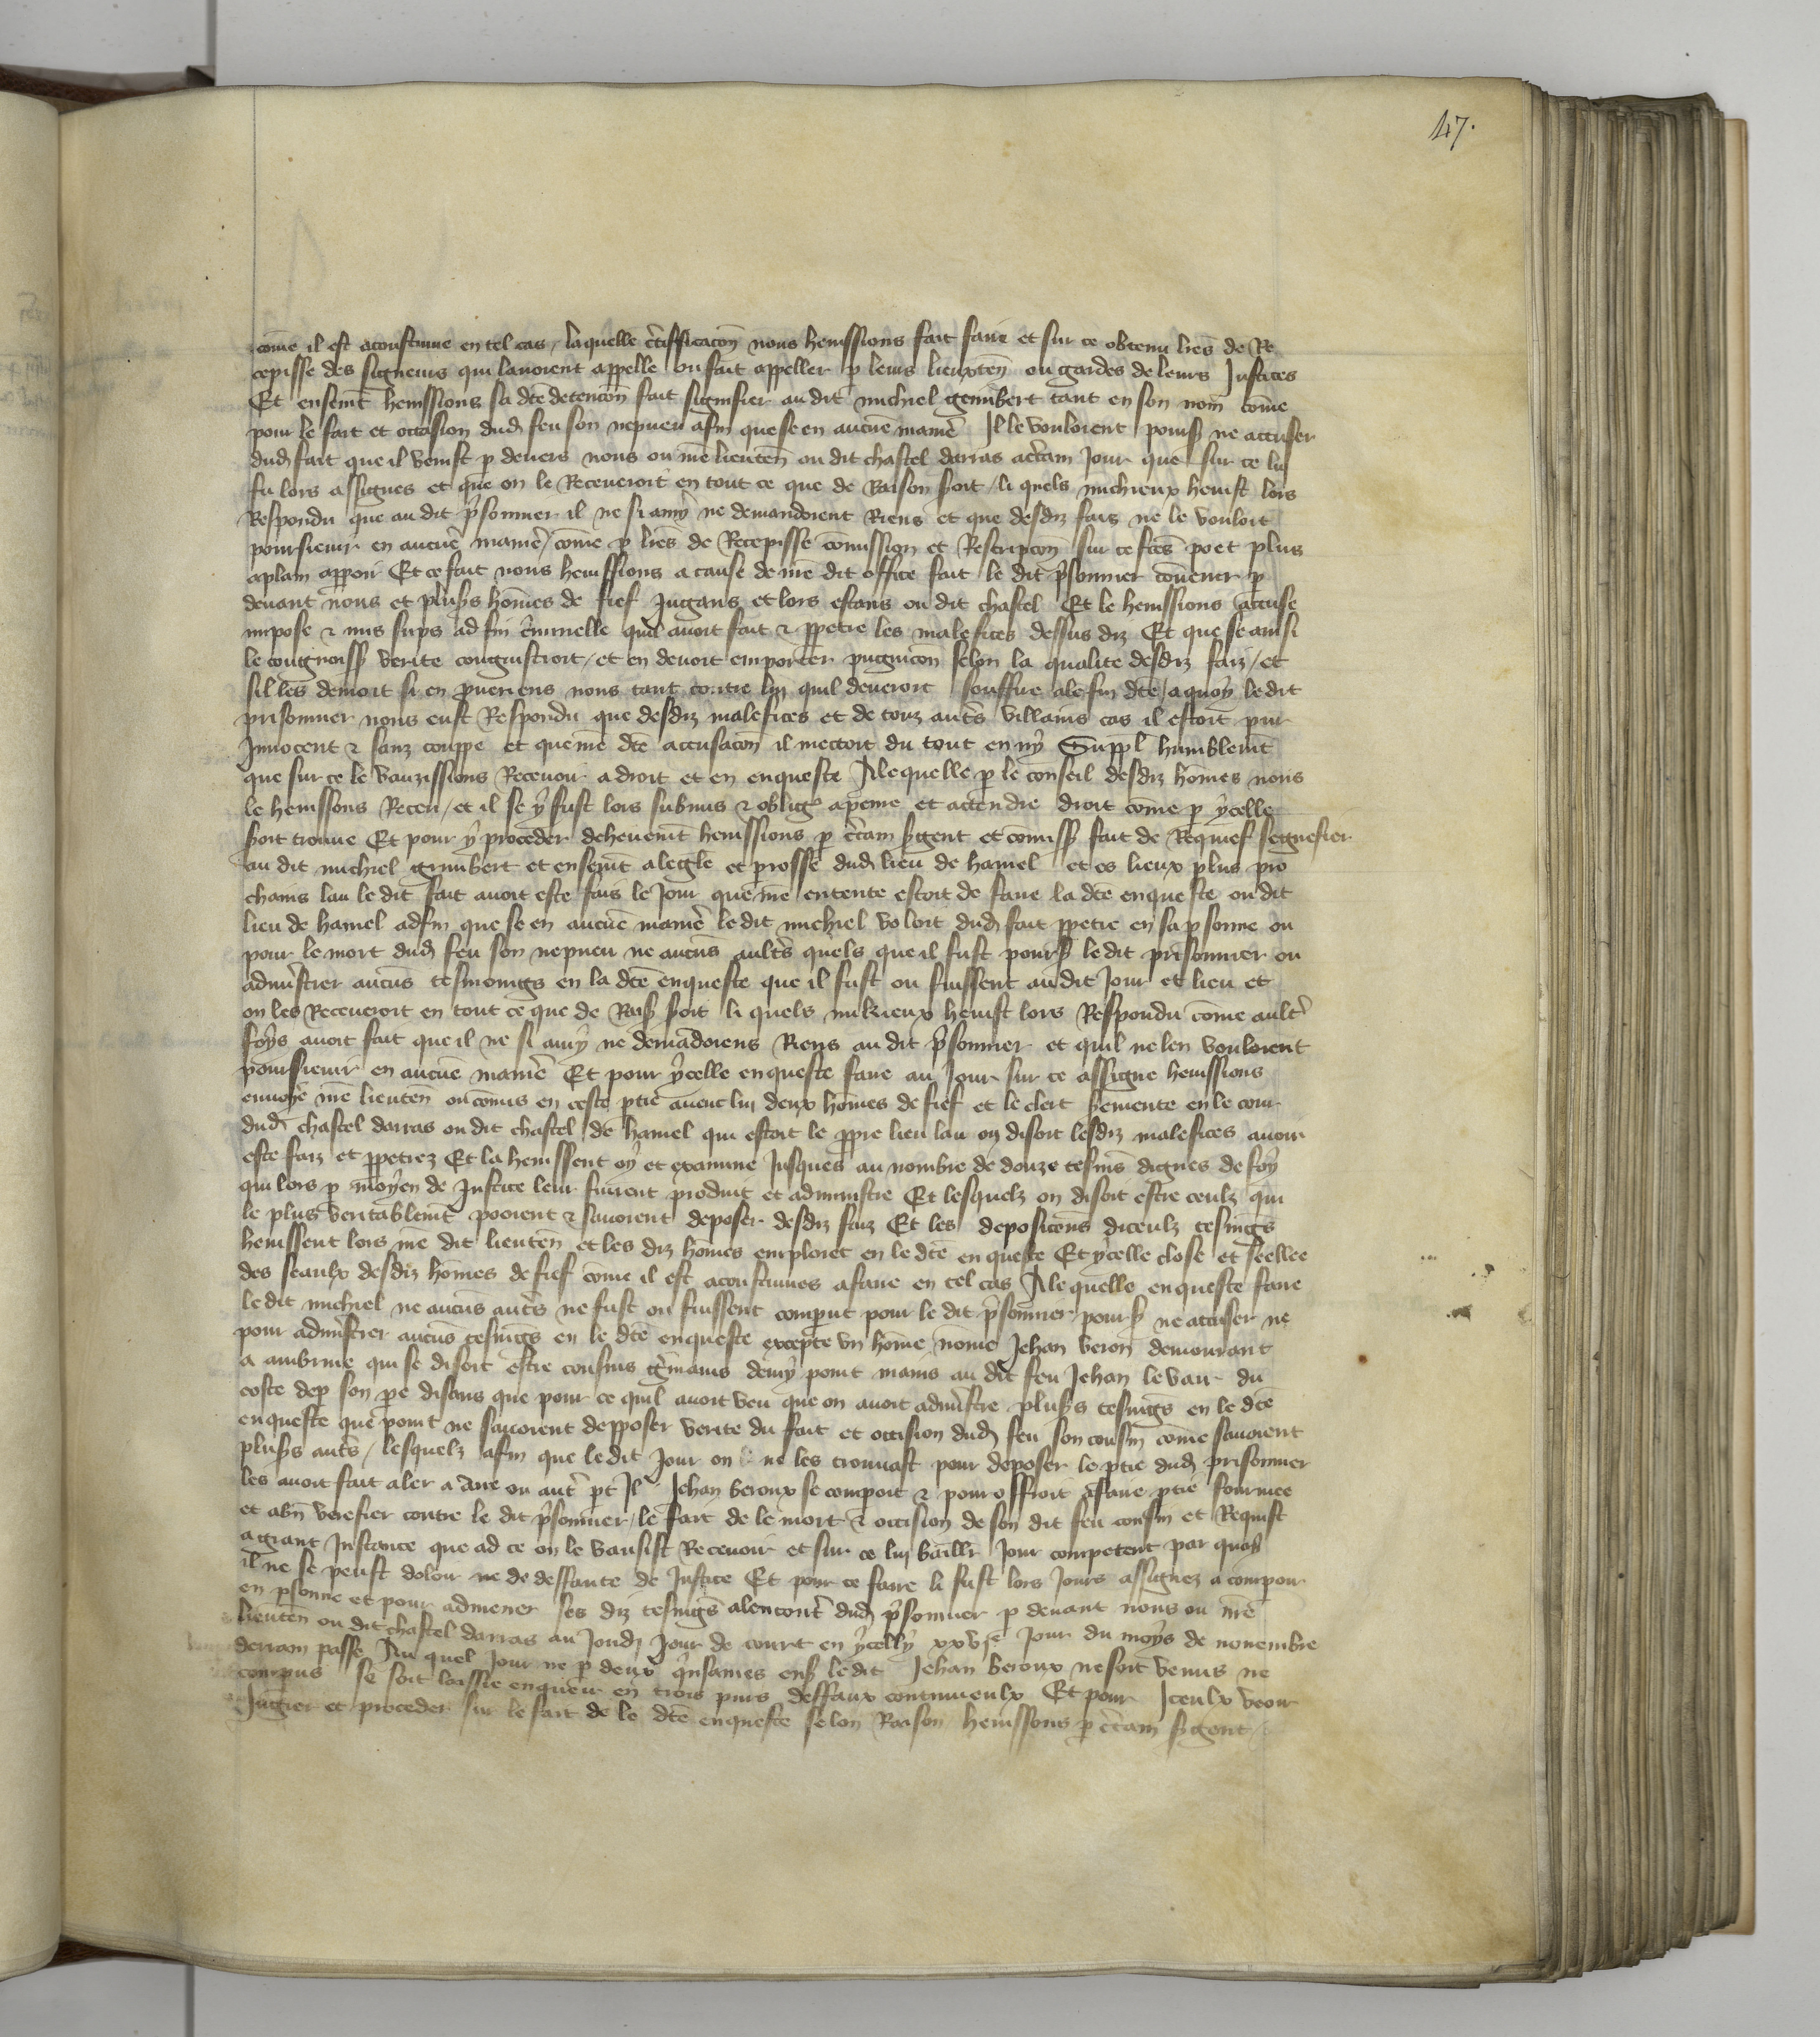 47.
come il est acoustume en tel cas / laquelle c'tifficacon nous heussions fait faire et sur ce obtenu lres de Re
cepisse des signeurs qui lavoient appelle ou fait appeller p leurs lieuxten ou gardes de leurs Justices
Et ensemt heussions sa dte detencon fait signifier au dit michiel gomibert tant en son nom come
pour le fait et occasion dud feu son nepueu afin que se en aucue manie Il le vouloient pours ne accuser
dud fait que il venist p devers nous ou nre lieuten ou dit chastel darras a ctain Jour que sur ce lui
fu lors assignes et que on le Receveroit en tout ce que de Raison soit / li quels michieux heust lors
Respondu que au dit p'sonnier il ne si amy ne demandoient Riens et que desdiz fais ne le vouloit
poursievir en aucue manie / come p lres de Recepisse comission et Rescripcon sur ce ftes poet plus
aplain apparoir Et ce fait nous heussions a cause de nre dit office fait le dit p'sonnier convenir p
devant nous et plus's homes de fief Jugans et lors estans ou dit chastel Et le heussions accuse
impose & mis sups ad fin c'minelle quil avoit fait & ppetre les malefices dessus diz Et que se ainsi
le congnoiss verite congnistroit / et en devoit emporter pugnicon selon la qualite desdiz faiz / et
sil les denioit si en pueriens nous tant contre lui quil deveroit souffire a le fin dte / a quoy le dit
prisonnier nous eust Respondu que desdiz malefices et de touz auts villains cas il estoit pur
Innocent & sanz couppe et que nre dte accusacon il mectoit du tout en ny Suppl humblemt
que sur ce le vauzissions Recevoir a droit et en enqueste A lequelle p le conseil desdiz homes nous
le heussons Receu / et il se y fust lors submis & oblig' a peine et actendre droit come p ycelle
soit trouve Et pour y proceder deheuemt heussions p c'tain s'gent et comiss fait de Requief segnefier
au dit michiel gunibert et ensemt a legle et prosse dud lieu de hamel et es lieux plus pro
chains lau le dit fait avoit este fais le Jour que nre entente estoit de faire la dte enqueste ou dit
lieu de hamel adfin que se en aucue manie le dit michiel voloit dud fait ppetre en sa psonne ou
pour le mort dud feu son nepueu ne aucus aultes quels que il fust pours le dit prisonnier ou
adm'strer aucus tesmoings en la dte enqueste que il fust ou fuissent audit Jour et lieu et
on les Receveroit en tout ce que de Rais soit li quels mikieux heust lors Respondu come ault'
foys avoit fait que il ne si amy ne demadoiens Riens au dit p'sonnier et quil ne len vouloient
poursievir en aucue manie Et pour ycelle enqueste faire au Jour sur ce assigne heussions
envoye nre lieuten ou comis en ceste ptie avenc lui deux homes de fief et le clerc semente en le cour
dud chastel darras ou dit chastel de hamel qui estoit le ppre lieu lau on disoit lesdiz malefices avoir
este faiz et ppetrez Et la heussent oy et examine Jusques au nombre de douze tesms dignes de foy
qui lors p moyen de Justice leur furent produit et administre Et lesquelz on disoit estre ceulz qui
le plus veritablemt pooient & savoient deposer desdiz faiz Et les deposicons diceulz tesmgs
heussent lors nre dit lieuten et les diz homes emploiet en le dte enqueste Et ycelle close et seellee
des seaulx desdiz homes de fief come il est acoustumes a faire en tel cas A lequelle enqueste faire
le dit michiel ne aucus auts ne fust ou fuissent comput pour le dit p'sonnier pours ne accuser ne
pour adm'strer aucus tesmgs en le dte enqueste excepte un home nome Jehan veron demourant
a aubrme qui se disoit estre cousins g'mains demy point mains au dit feu Jehan le vair du
coste dep son pe disans que pour ce quil avoit veu que on avoit adm'stre plus's tesmgs en le dte
enqueste que point ne savoient depposer verite du fait et occision dud feu son cousin come savoient
plus's auts / lesquelz afin que le dit Jour on ne les trouvast pour deposer le ptie dud prisonnier
les avoit fait aler a aire ou aut' pt Il Jehan veroux se comproit & pour offroit a faire ptie fourmee
et abn verefier contre le dit p'sonnier / le fait de le mort & occision de son dit feu cousin et Requist
a grant Instance que ad ce on le vausist Recevoir et sur ce lui baillr Jour competent par quoy
il ne se peust doloir ne de deffaute de Justice Et pour ce faire li fust lors Jours assignez a compoir
en psonne et pour admener ses diz tesmgs alencont' dud p'sonnier p devant nous ou nre
lieuten ou dit chastel darras au Joudi Jour de court en ycelly xxvje Jour du moys de novembre
derrain passe Au quel Jour ne p deux q'nsaines ens le dit Jehan veroux ne soit venus ne
compus se soit laissie enqueir en trois purs deffaux continueulx Et pour Iceulx veoir
Jugier et proceder sur le fait de le dte enqueste selon Raison heussons p c'tain s'gent